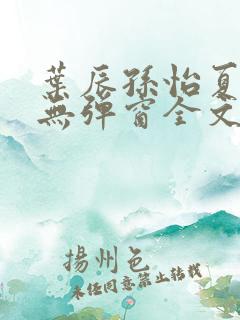 葉辰孫怡夏
無彈窗全文
揚州色
未任同意禁止转载